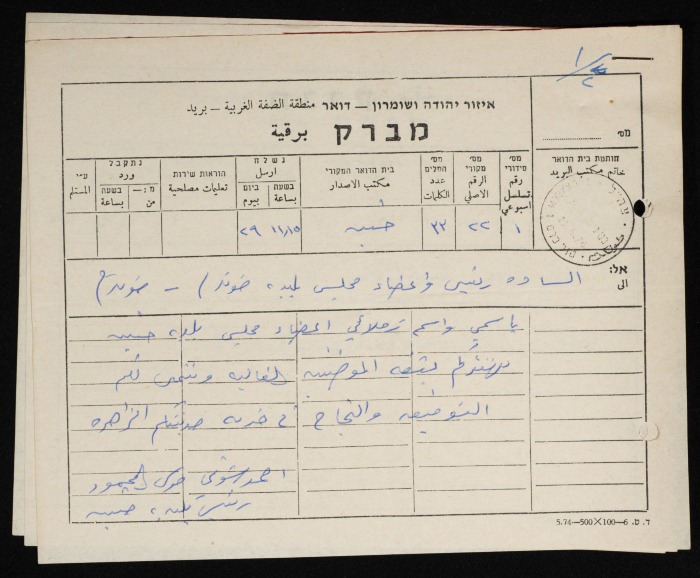 1/2
איזור יהודה ושומרון – דואר منطقة الضفة الغربية – بريد
מברק برقية
מס׳
חותמת בית הדואר
خاتم مكتب البريد
מס׳ סידורי
رقم تسلسل اسبوعي
מס׳ מקורי
الرقم الاصلي
מס׳ המלים
عدد الكلمات
בית הדואר המקורי
مكتب الاصدار
נשלח
ارسل
בשעה
بساعة
ביום
بيوم
הוראות שירות
تعليمات مصلحية
נתקבל
ورد
בשעה
بساعة
מ:—
من
ע״י
المستلم
١ ٢٢ ٣٣ ١١/١٥ ٢٩
אל:
الى
الساده رئيس واعضاء مجلس بلديه
باسمي واسم زملائي اعضاء مجلس بلديه
نهنئكم بثقه الغاليه ونتمنى لكم
التوفيق والنجاح في خدمه مدينتكم الزاهره
احمد شوقي المحمود
رئيس بلديه
ד. ט. 6–100×500–5.74